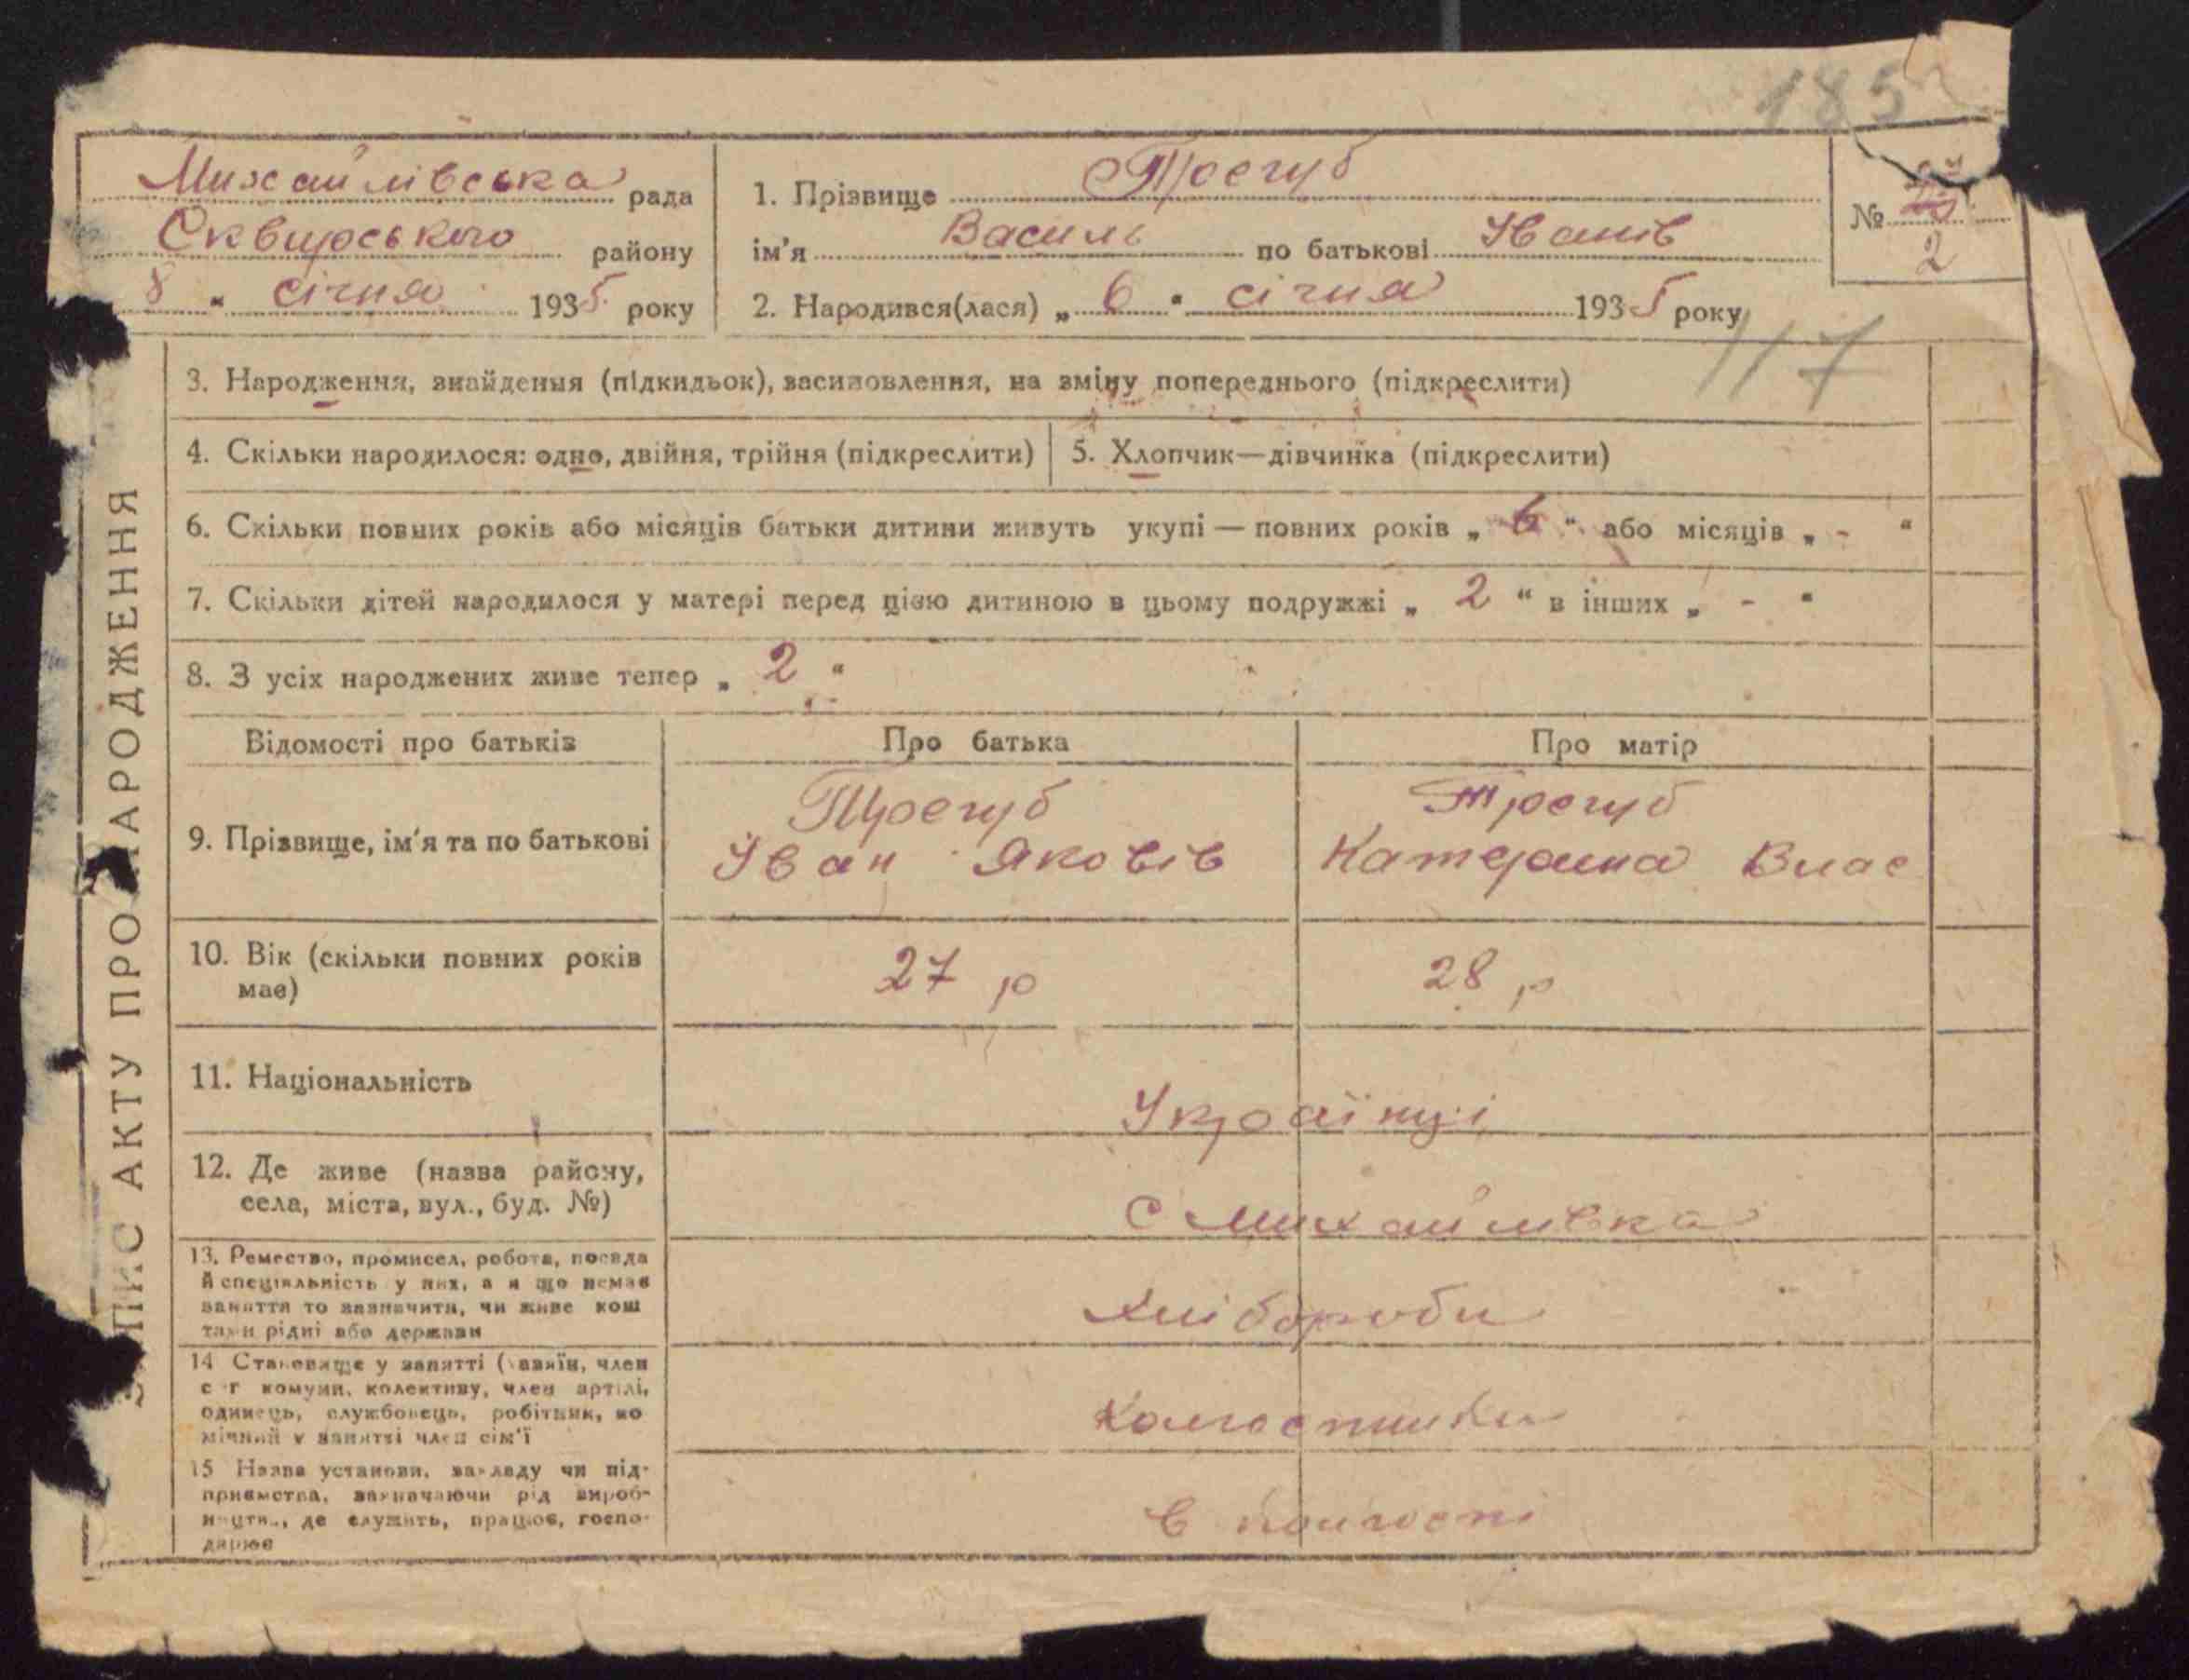 185
Михайлівська рада
Сквирського району
8 " січня 1935 року
1. Прізвище Трегуб
ім'я Василь по батькові Іванів
2. Народився(лася) „ 6 " січня 1935 року
№
2
117
3. Народження, знайдення (підкидьок), засиновлення, на зміну попереднього (підкреслити)
4. Скільки народилося: одно, двійня, трійня (підкреслити)
5. Хлопчик—дівчинка (підкреслити)
6. Скільки повних років або місяців батьки дитини живуть укупі — повних років „ 6 " або місяців „ - "
7. Скільки дітей народилося у матері перед цією дитиною в цьому подружжі „ 2 " в інших „ - "
8. З усіх народжених живе тепер „ 2 "
Відомості про батьків
Про батька
Про матір
9. Прізвище, ім'я та по батькові
Трегуб
Іван Яковів
Трегуб
Катерина Влас
10. Вік (скільки повних років
має)
27 р
28 р
11. Національність
Українці
12. Де живе (назва району,
села, міста, вул., буд. №)
С Михайлівка
13. Ремество, промисел, робота, посада
й спеціяльність у них, а я що немає
заняття то зазначити, чи живе кош
тами рідні або держави
Хлібороби
14 Становище у занятті (хазяїн, член
с г комуни, колективу, член артілі,
одинець, службовець, робітник, по
мічний у занятті член сім'ї
Колгоспники
15 Назва установи, закладу чи під-
приємства, зазначаючи рід вироб-
ництва, де служить, працює, госпо-
дарює
в колгоспі
ЗАПИС АКТУ ПРО НАРОДЖЕННЯ